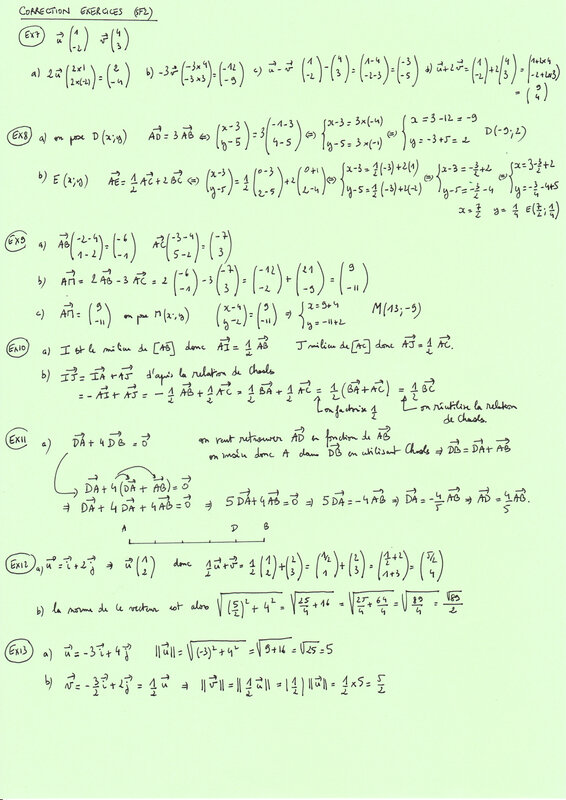 CORRECTION EXERCICES (SF2)
Ex7 u⃗ (1 ; -2) v⃗ (4 ; 3)
a) 2u⃗ (2×1 ; 2×(-2)) = (2 ; -4) b) -3v⃗ (-3×4 ; -3×3) = (-12 ; -9) c) u⃗ - v⃗ (1 ; -2) - (4 ; 3) = (1-4 ; -2-3) = (-3 ; -5) d) u⃗ + 2v⃗ = (1 ; -2) + 2(4 ; 3) = (1+2×4 ; -2+2×3) = (9 ; 4)
Ex8 a) on pose D(x;y) AD⃗ = 3AB⃗ ⇔ (x-3 ; y-5) = 3(-1-3 ; 4-5) ⇔ {x-3 = 3×(-4) ; y-5 = 3×(-1) ⇔ {x = 3-12 = -9 ; y = -3+5 = 2 D(-9;2)
b) E(x;y) AE⃗ = 1/2 AC⃗ + 2BC⃗ ⇔ (x-3 ; y-5) = 1/2 (0-3 ; 2-5) + 2(0+1 ; 2-4) ⇔ {x-3 = 1/2(-3)+2(1) ; y-5 = 1/2(-3)+2(-2) ⇔ {x-3 = -3/2+2 ; y-5 = -3/2-4 ⇔ {x = 3-3/2+2 ; y = -3/2-4+5
x = 7/2 y = 1/4 E(7/2 ; 1/4)
Ex9 a) AB⃗ (-2-4 ; 1-2) = (-6 ; -1) AC⃗ (-3-4 ; 5-2) = (-7 ; 3)
b) AM⃗ = 2AB⃗ - 3AC⃗ = 2(-6 ; -1) - 3(-7 ; 3) = (-12 ; -2) + (21 ; -9) = (9 ; -11)
c) AM⃗ = (9 ; -11) on pose M(x;y) (x-4 ; y-2) = (9 ; -11) ⇒ {x = 9+4 ; y = -11+2 M(13;-9)
Ex10 a) I est le milieu de [AB] donc AI⃗ = 1/2 AB⃗ J milieu de [AC] donc AJ⃗ = 1/2 AC⃗.
b) IJ⃗ = IA⃗ + AJ⃗ d'après la relation de Chasles
= -AI⃗ + AJ⃗ = -1/2 AB⃗ + 1/2 AC⃗ = 1/2 BA⃗ + 1/2 AC⃗ = 1/2 (BA⃗ + AC⃗) = 1/2 BC⃗
on factorise 1/2 on réutilise la relation
de Chasles.
Ex11 a) DA⃗ + 4DB⃗ = 0⃗ on veut retrouver AD⃗ en fonction de AB⃗
on insère donc A dans DB⃗ en utilisant Chasles ⇒ DB⃗ = DA⃗ + AB⃗
DA⃗ + 4(DA⃗ + AB⃗) = 0⃗
⇒ DA⃗ + 4DA⃗ + 4AB⃗ = 0⃗ ⇒ 5DA⃗ + 4AB⃗ = 0⃗ ⇒ 5DA⃗ = -4AB⃗ ⇒ DA⃗ = -4/5 AB⃗ ⇒ AD⃗ = 4/5 AB⃗.
A D B
Ex12 a) u⃗ = i⃗ + 2j⃗ ⇒ u⃗ (1 ; 2) donc 1/2 u⃗ + v⃗ = 1/2 (1 ; 2) + (2 ; 3) = (1/2 ; 1) + (2 ; 3) = (1/2+2 ; 1+3) = (5/2 ; 4)
b) la norme de ce vecteur est alors √((5/2)² + 4²) = √(25/4 + 16) = √(25/4 + 64/4) = √(89/4) = √89/2
Ex13 a) u⃗ = -3i⃗ + 4j⃗ ||u⃗|| = √((-3)² + 4²) = √(9+16) = √25 = 5
b) v⃗ = -3/2 i⃗ + 2j⃗ = 1/2 u⃗ ⇒ ||v⃗|| = ||1/2 u⃗|| = |1/2| ||u⃗|| = 1/2 × 5 = 5/2